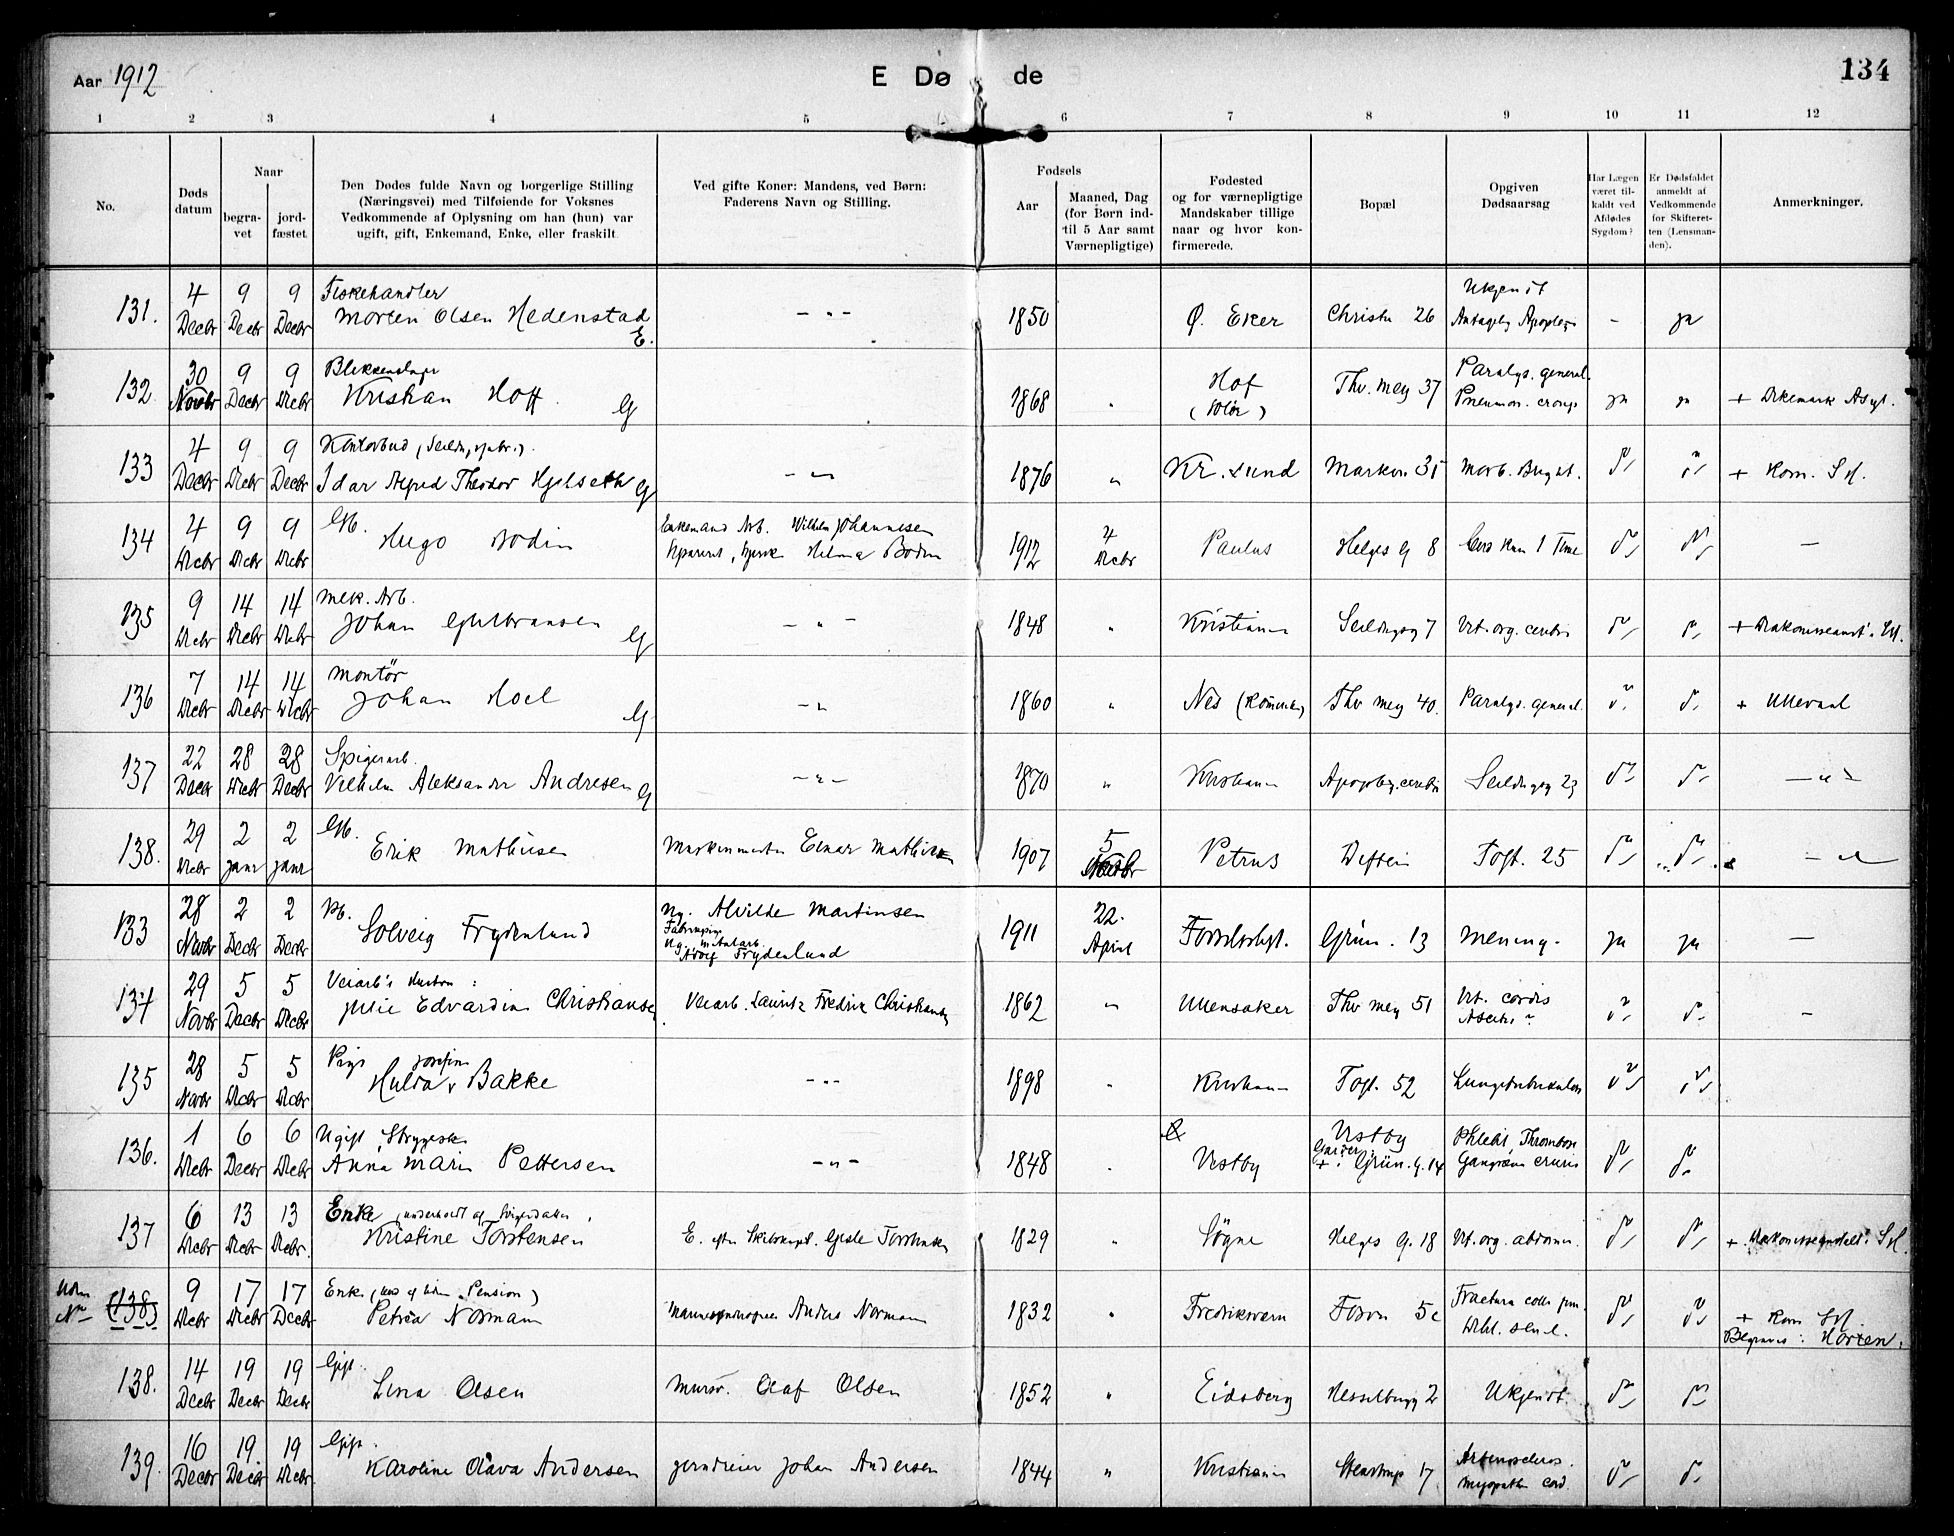 Aar 1912
E Dø de
134
1 2 3 4 5 6 7 8 9 10 11 12
No.
Døds datum
Naar
begra-vet
jord-fæstet
Den Dødes fulde Navn og borgerlige Stilling
(Næringsvei) med Tilføiende for Voksnes
Vedkommende af Oplysning om han (hun) var
ugift, gift, Enkemand, Enke, eller fraskilt.
Ved gifte Koner: Mandens, ved Børn:
Faderens Navn og Stilling.
Fødsels
Aar
Maaned, Dag
(for Børn ind-
til 5 Aar samt
Værnepligtige)
Fødested
og for værnepligtige
Mandskaber tillige
naar og hvor kon-
firmerede.
Bopæl
Opgiven
Dødsaarsag
Har Lægen
været til-
kaldt ved
Afdødes
Sygdom?
Er Dødsfaldet
anmeldt af
Vedkommende
for Skifteret-
ten (Lensman-
den).
Anmerkninger.
Fiskehandler Ukjendt
131. 4 Decbr 9 Decbr 9 Decbr Morten Olsen Hedenstad E. — " — 1850 Ø. Eker Christu 26 Antagelig Apoplexi - ja
Paralys. general.
132 30 Novbr 9 Decbr 9 Decbr Kristian Hoff G 1868 " Hof (Solør) Thv. mey 37 Pneumon. croup ja ja + Dikemark Asyl.
Kontorbud
133 4 Decbr 9 Decbr 9 Decbr Idar Alfred Theodor Hjelseth G — " — 1876 " Kr. sund Markvn 35 Morb. Bright. + Kom. S H.
Gb. Enkemand Arb. Wilhelm Johannesen
134 4 Decbr 9 Decbr 9 Decbr Hugo Bodin Separert, Hjelma Bodin 1912 4 Decbr Paulus Helges G 8 Leved kun 1 Time —
Mek. Arb.
135 9 Decbr 14 Decbr 14 Decbr Johan Gulbransen G — " — 1848 " Kristiania Seildugsg 7 Vit. org. cordis + Diakonisseanst. SH.
Montör
136 7 Decbr 14 Decbr 14 Decbr Johan Hoel G — " 1860 " Nes (Romerike) Thv mey 40. Paralys. general. + Ullevaal
Spigerarb.
137 22 Decbr 28 Decbr 28 Decbr Vilhelm Aleksander Andresen G — " — 1870 " Kristiania Apoplex. cerebri Seildugsg 23 — " —
Gb.
138. 29 Decbr 2 janr 2 janr Erik Mathisen Maskinmester Einar Mathisen 1907 5 Petrus Difteri Toft. 25 — " —
Pb. Ug. Alvilde Martinsen
133 28 Novbr 2 Decbr 2 Decbr Solveig Frydenlund Ug. metalarb. Adolf Frydenlund 1911 22. April Fødselsst. Grün. 13 Mening. ja ja —
Veiarb's Hustru: Vit. cordis
134 29 Novbr 5 Decbr 5 Decbr Julie Edvardine Christiansen Veiarb. Lauritz Fredrik Christiansen 1862 " Ullensaker Thv mey 51 Ascites —
Pige Josefine
135 28 Novbr 5 Decbr 5 Decbr Hulda v Bakke — " — 1898 " Kristiania Toft. 52 Lungetuberkulose
Ugift Strygerske Vestby Phlebit. Thrombose
136. 1 Decbr 6 Decbr 6 Decbr Anna Marie Pettersen — " — 1848 " Vestby Garder + Grün. g. 14 Gangræna cruris
Enke, underholdt af Svigerdatter.
137 6 Decbr 13 Decbr 13 Decbr. Kristine Torstensen E. efter Skibskapt. Gisle Torstensen 1829 " Søgne Helges G. 18 Vit. org. abdomin. + Diakonisseanstalt. S H.
Uden No Enke (und af liden Pension) Fractura colli fem.
(138) 9 Decbr 17 Decbr 17 Decbr Petrea Norman Anders Norman 1832 " Fredriksværn Fossv 5c Debil. senil. + Kom S H.
Begraves: Horten.
Gift.
138. 14 Decbr 19 Decbr 19 Decbr Lina Olsen Mursv. Olaf Olsen 1852 " Eidsberg Hesselbergg 2 Ukjendt.
Gift. Arterioscleros.
139. 16 Decbr 19 Decbr 19 Decbr Karoline Olava Andersen Jerndreier Johan Andersen 1844 " Kristiania Steenstrup 17 Myopathia cord.